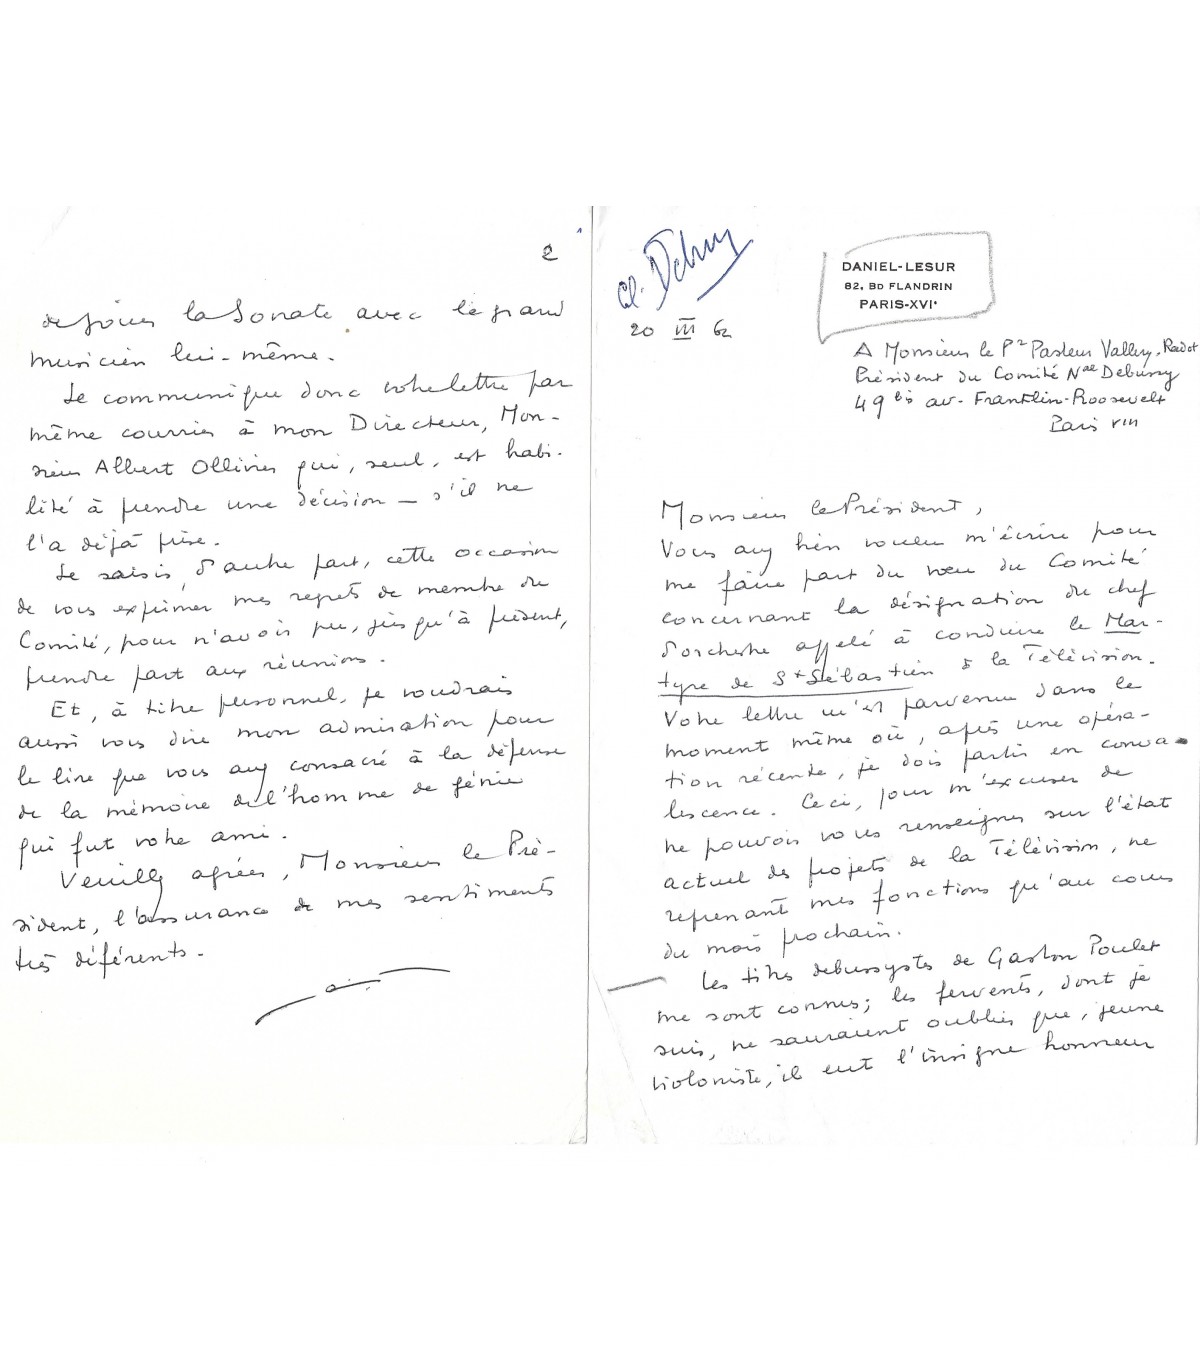 Cl. Debussy
DANIEL-LESUR
82, BD FLANDRIN
PARIS-XVIe
20 III 62
A Monsieur le Pr Pasteur Vallery-Radot
Président du Comité Nal Debussy
49 bis av. Franklin-Roosevelt
Paris VIII
Monsieur le Président,
Vous avez bien voulu m'écrire pour
me faire part du vœu du Comité
concernant la désignation du chef
d'orchestre appelé à conduire le Mar-
tyre de St Sébastien à la Télévision.
Votre lettre m'est parvenue dans le
moment même où, après une opéra-
tion récente, je dois partir en conva-
lescence. Ceci, pour m'excuser de
ne pouvoir vous renseigner sur l'état
actuel des projets de la Télévision, ne
reprenant mes fonctions qu'au cours
du mois prochain.
Les titres debussystes de Gaston Poulet
me sont connus; les fervents, dont je
suis, ne sauraient oublier que, jeune
violoniste, il eut l'insigne honneur
2
de jouer la Sonate avec le grand
musicien lui-même.
Je communique donc votre lettre par
même courrier à mon Directeur, Mon-
sieur Albert Ollivier qui, seul, est habi-
lité à prendre une décision — s'il ne
l'a déjà prise.
Je saisis, d'autre part, cette occasion
de vous exprimer mes regrets de membre du
Comité, pour n'avoir pu, jusqu'à présent,
prendre part aux réunions.
Et, à titre personnel, je voudrais
aussi vous dire mon admiration pour
le livre que vous avez consacré à la défense
de la mémoire de l'homme de génie
qui fut votre ami.
Veuillez agréer, Monsieur le Pré-
sident, l'assurance de mes sentiments
très déférents.